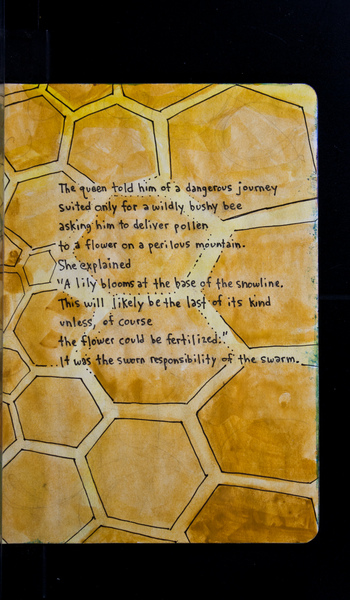 The queen told him of a dangerous journey
suited only for a wildly bushy bee
asking him to deliver pollen
to a flower on a perilous mountain.
She explained
"A lily blooms at the base of the snowline.
This will likely be the last of its kind
unless, of course
the flower could be fertilized."
It was the sworn responsibility of the swarm.